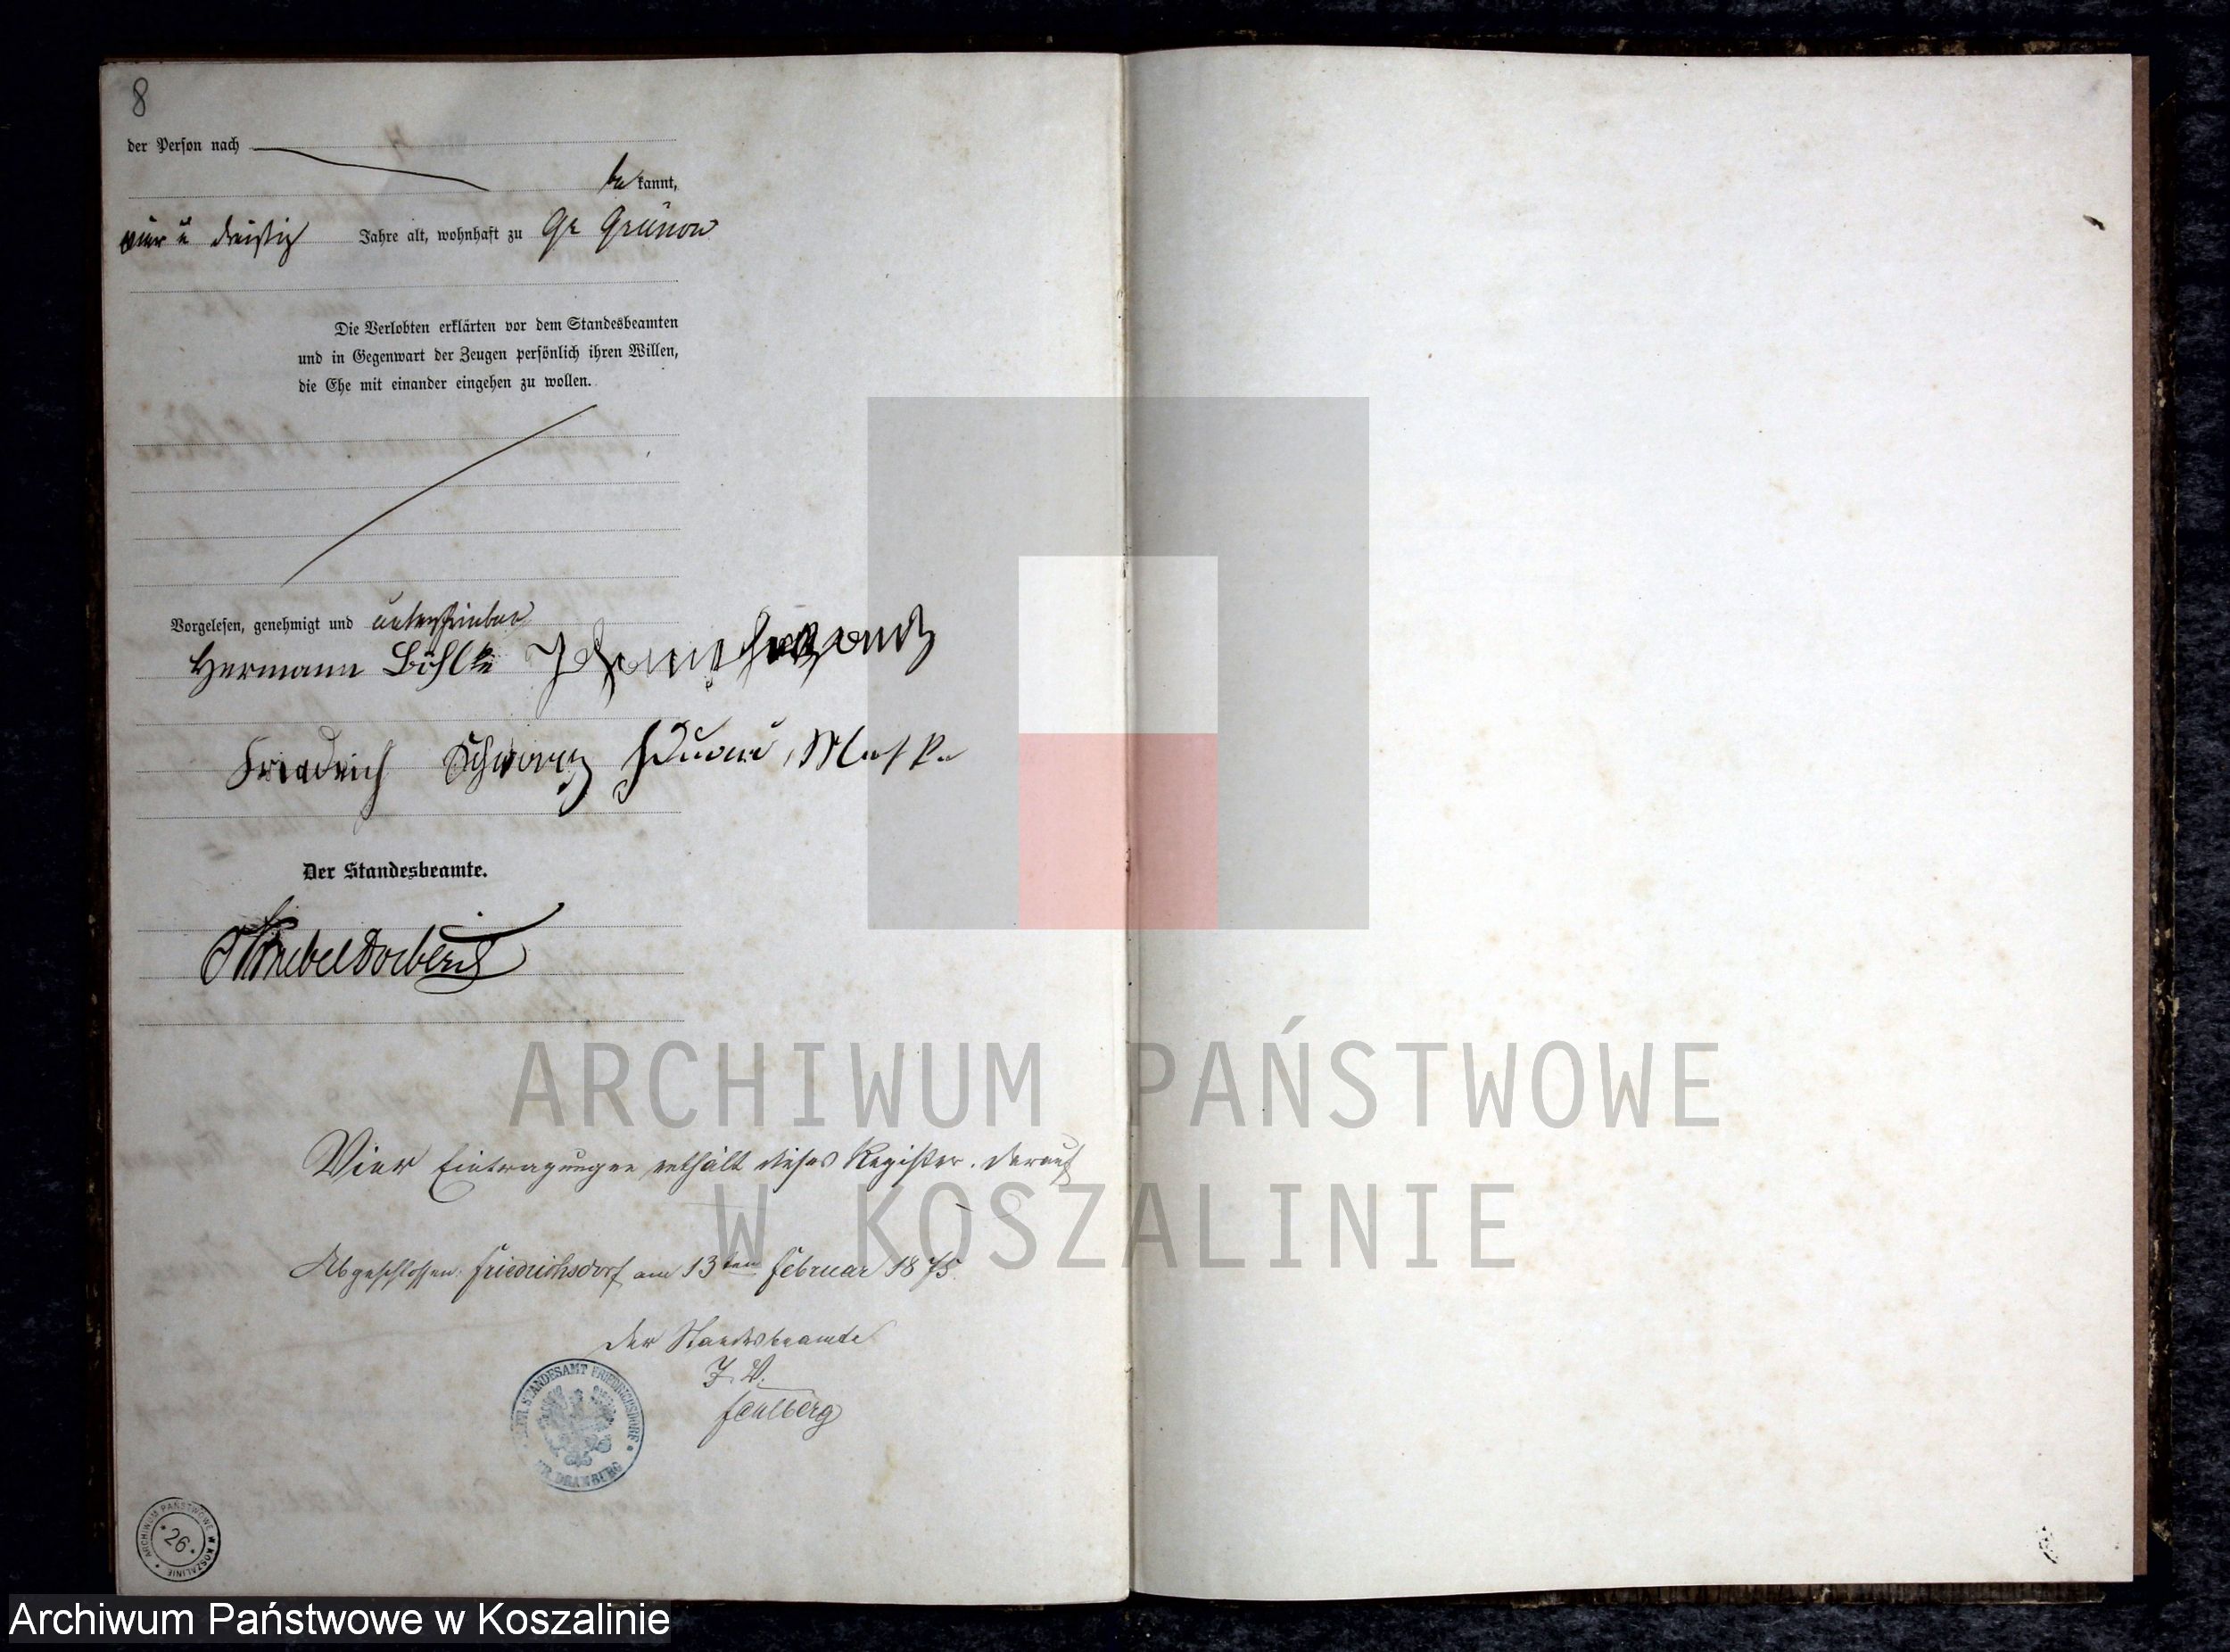 8
der Person nach
bekannt,
vier u dreißig Jahre alt, wohnhaft zu Gr Grünow
Die Verlobten erklärten vor dem Standesbeamten
und in Gegenwart der Zeugen persönlich ihren Willen,
die Ehe mit einander eingehen zu wollen.
Vorgelesen, genehmigt und unterschrieben
Hermann Böhlke
Friedrich Schwarz
Der Standesbeamte.
Vier Eintragungen enthält dieses Register.
Abgeschlossen: Friedrichsdorf am 13ten Februar 1875.
Der Standesbeamte
J. V.
Faulberg
STANDESAMT FRIEDRICHSDORF
KR. DRAMBURG
ARCHIWUM PAŃSTWOWE W KOSZALINIE
26
ARCHIWUM PAŃSTWOWE
W KOSZALINIE
Archiwum Państwowe w Koszalinie